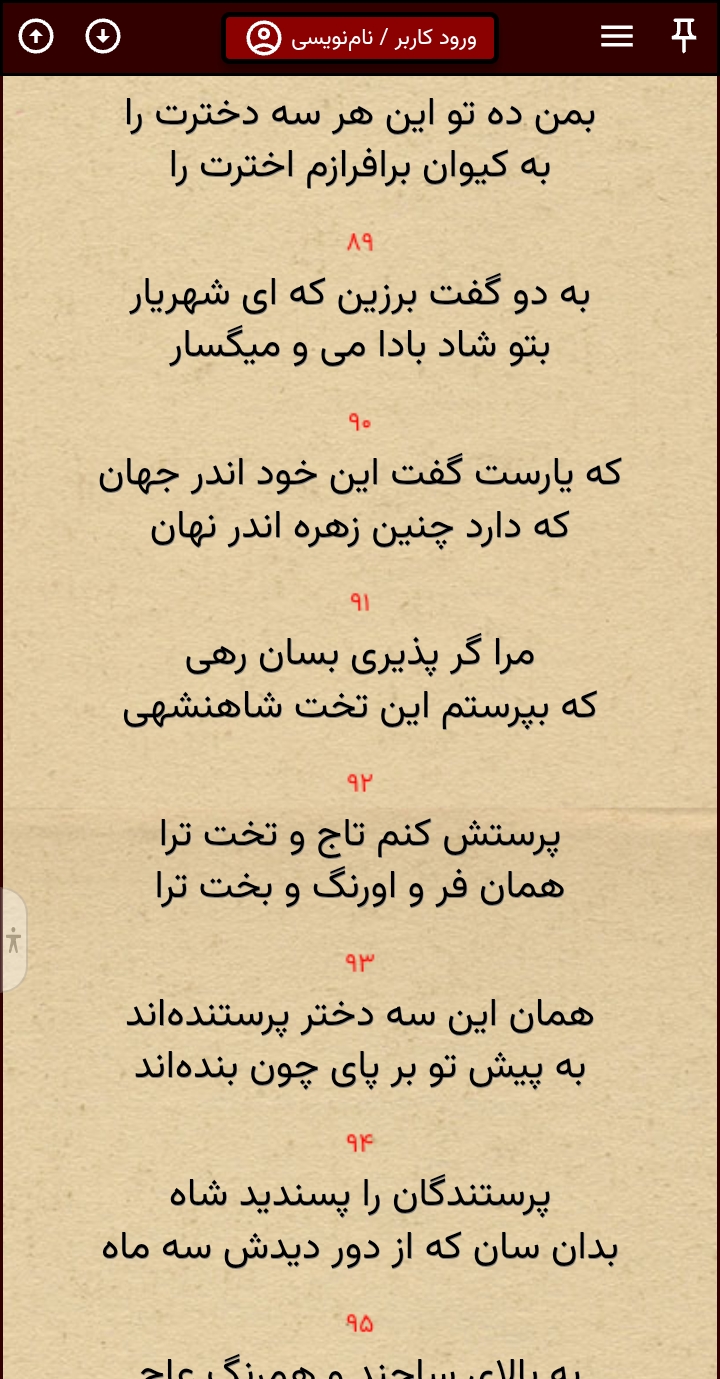 ورود کاربر / نام‌نویسی
بمن ده تو این هر سه دخترت را
به کیوان برافرازم اخترت را
۸۹
به دو گفت برزین که ای شهریار
بتو شاد بادا می و میگسار
۹۰
که یارست گفت این خود اندر جهان
که دارد چنین زهره اندر نهان
۹۱
مرا گر پذیری بسان رهی
که بپرستم این تخت شاهنشهی
۹۲
پرستش کنم تاج و تخت ترا
همان فر و اورنگ و بخت ترا
۹۳
همان این سه دختر پرستنده‌اند
به پیش تو بر پای چون بنده‌اند
۹۴
پرستندگان را پسندید شاه
بدان سان که از دور دیدش سه ماه
۹۵
به بالای ساجند و همرنگ عاج